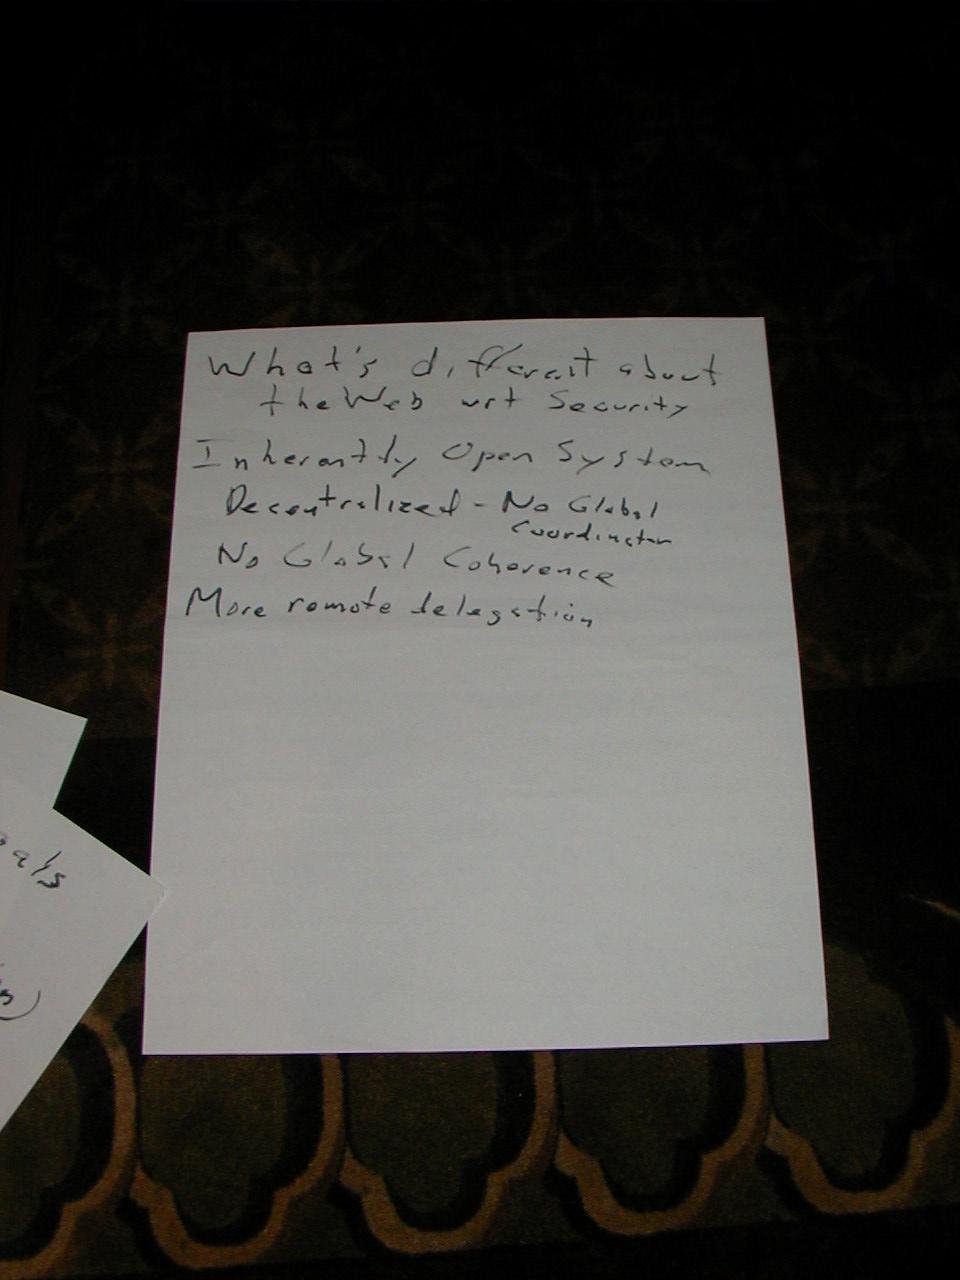 What's different about
the Web wrt Security
Inherantly Open System
Decentralized - No Global
Coordinator
No Global Coherence
More remote delegation
als